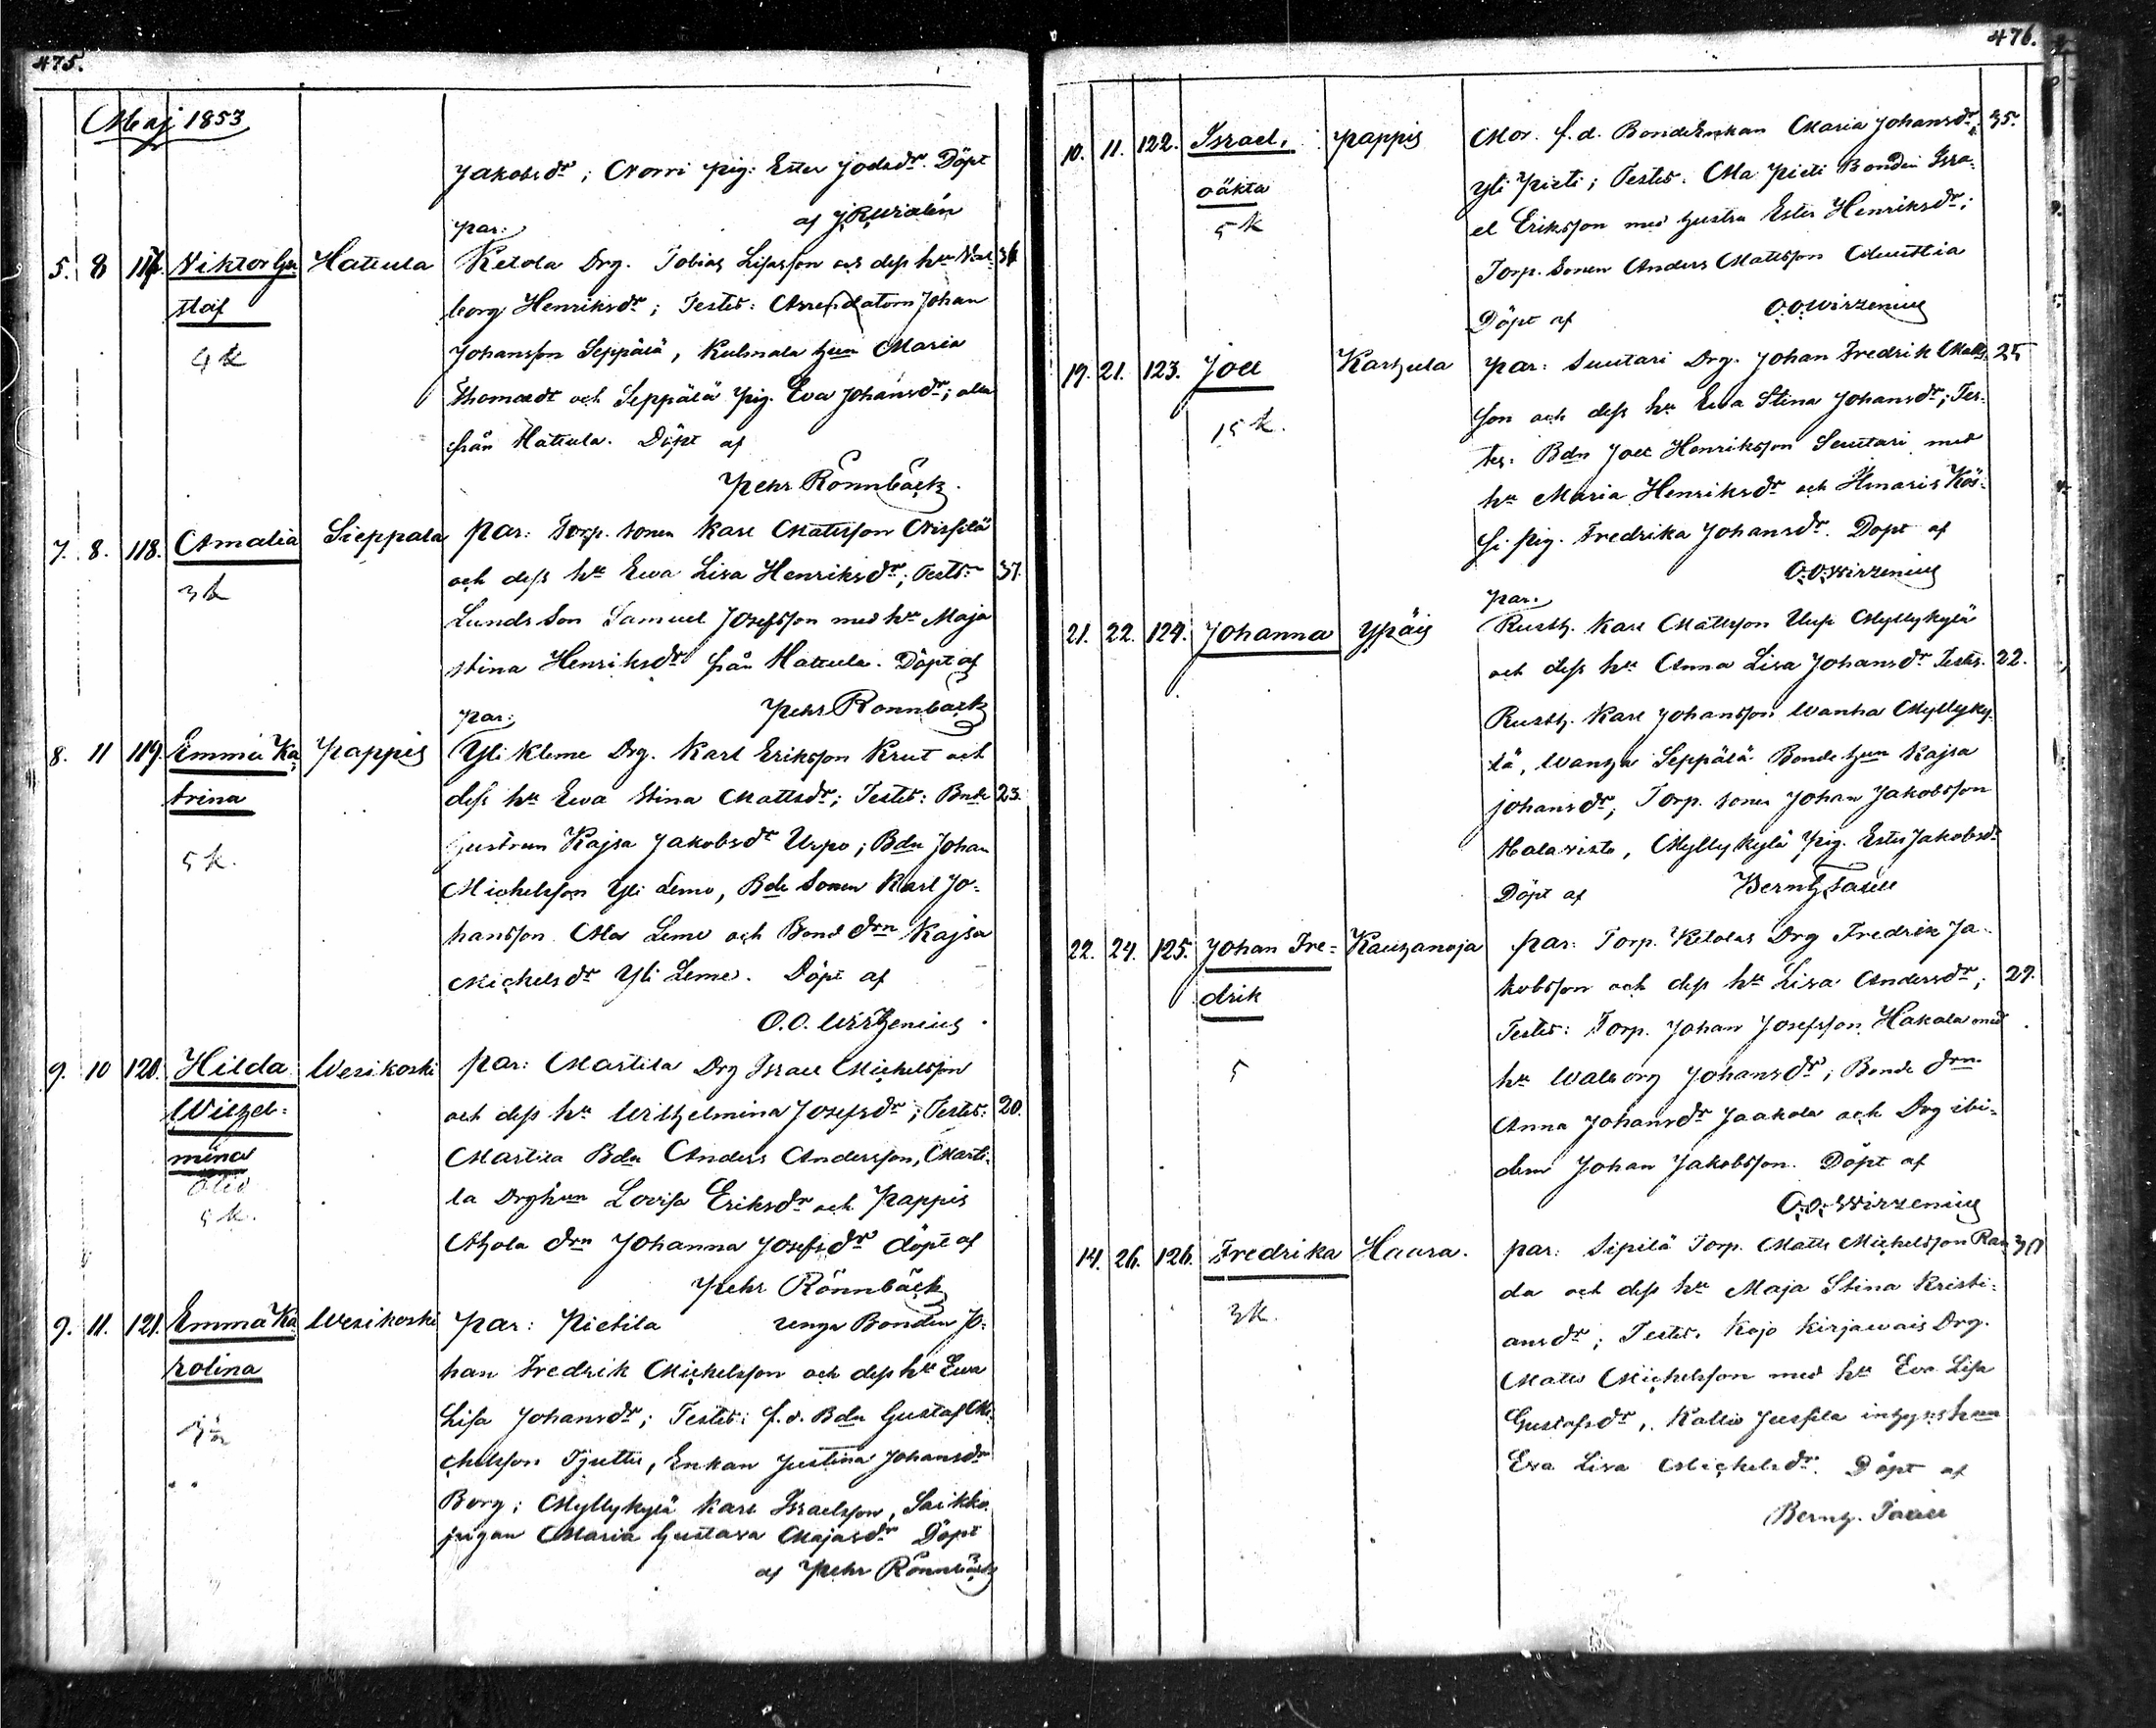 475.
Maj 1853
Jakobsdr; Norri pig. Ester Joelsdr. Döpt
af J.R. Widlén
par:
5. 8 117. Viktor Gu Hattula Ketola Drg. Tobias Lisasson och dess hu Wal- 36
staf borg Henriksdr; Testes: Arrendatorn Johan
4 k Johansson Seppälä, Kulmala hun Maria
Thomasdr och Seppälä pig. Eva Johansdr; alla
från Hattula. Döpt af
Pehr Rönnbäck.
7. 8. 118. Amalia Sieppala par: Torp. sonen Karl Mattsson Nissilä
3 k och dess hu Ewa Lisa Henriksdr; Tests: 37.
Lunds Son Samuel Josefsson med hu Maja
stina Henriksdr från Hattula. Döpt af
Pehr Rönnbäck
par:
8. 11 119. Emma Ka Pappis Yli Kleme Drg. Karl Eriksson Krut och
trina dess hu Ewa Stina Mattsdr; Testes: Bnde 23.
5 k. hustrun Kajsa Jakobsdr Urpo; Bdn Johan
Michelsson Yli Lemo, Bde Sonen Karl Jo-
hansson Ala Lemo och Bond drn Kajsa
Michelsdr Yli Leme. Döpt af
O.O. Wirzenius.
9. 10 120. Hilda Wesikoski par: Marttila Drg Israel Michelsson
Wilhel- och dess hu Wilhelmina Josefsdr; Testes: 20.
mina Marttila Bdn Anders Andersson, Martti-
5 k. la Drghun Lovisa Eriksdr och Pappis
Ahola drn Johanna Josefsdr döpt af
Pehr Rönnbäck
9. 11. 121. Emma Ka Wesikoski par: Pietila unga Bonden Jo-
rolina han Fredrik Michelsson och dess hu Ewa
Lisa Johansdr; Testes: f.d. Bdn Gustaf Mi-
chelsson Tjutti, Enkan Justina Johansdr
Borg; Myllykylä Karl Israelsson, Saikko
pigan Maria Gustava Majasdr Döpt
af Pehr Rönnbäck
476.
10. 11. 122. Israel, Pappis Mor. f.d. BondeEnkan Maria Johansdr, 35.
oäkta Yli Pieti; Testes. Ala Pieti Bonden Isra-
5 k el Eriksson med hustru Ester Henriksdr;
Torp. Sonen Anders Mattsson
Döpt af O.O. Wirzenius
19. 21. 123. Joel Karhula par: Suutari Drg. Johan Fredrik Matts- 25
15 k. son och dess hu Eva Stina Johansdr; Tes-
tes: Bdn Joel Henriksson Suutari med
hu Maria Henriksdr och Kös-
si pig. Fredrika Johansdr. Döpt af
O.O. Wirzenius
par.
21. 22. 124. Johanna Ypäis Rusth. Karl Mattsson Uusi Myllykylä
och dess hu Anna Lisa Johansdr Testes. 22.
Rusth. Karl Johansson Wanha Myllyky-
lä, Wanha Seppälä Bonde hun Kajsa
Johansdr, Torp. sonen Johan Jakobsson
, Myllykylä pig. Ester Jakobsdr
Döpt af Bernh. Taléll
22. 24. 125. Johan Fre- Kauhanoja par: Torp. Ketolas Drg Fredrik Ja-
drik kobsson och dess hu Lisa Andersdr; 29.
Testes: Torp. Johan Josefsson Hakala med
5 hu Walborg Johansdr; Bonde drn
Anna Johansdr Jaakola och Drg ibi-
dem Johan Jakobsson. Döpt af
O.O. Wirzenius
14. 26. 126. Fredrika Haara. par: Sipilä Torp. Matts Michelsson Ran 30
3 k. da och dess hu Maja Stina Kristi-
ansdr; Testes. Kojo Kirjawais Drg.
Matts Michelsson med hu Eva Lisa
Gustafsdr, Kallio Jussila inhyshun
Eva Lisa Michelsdr. Döpt af
Bernh. Taléll